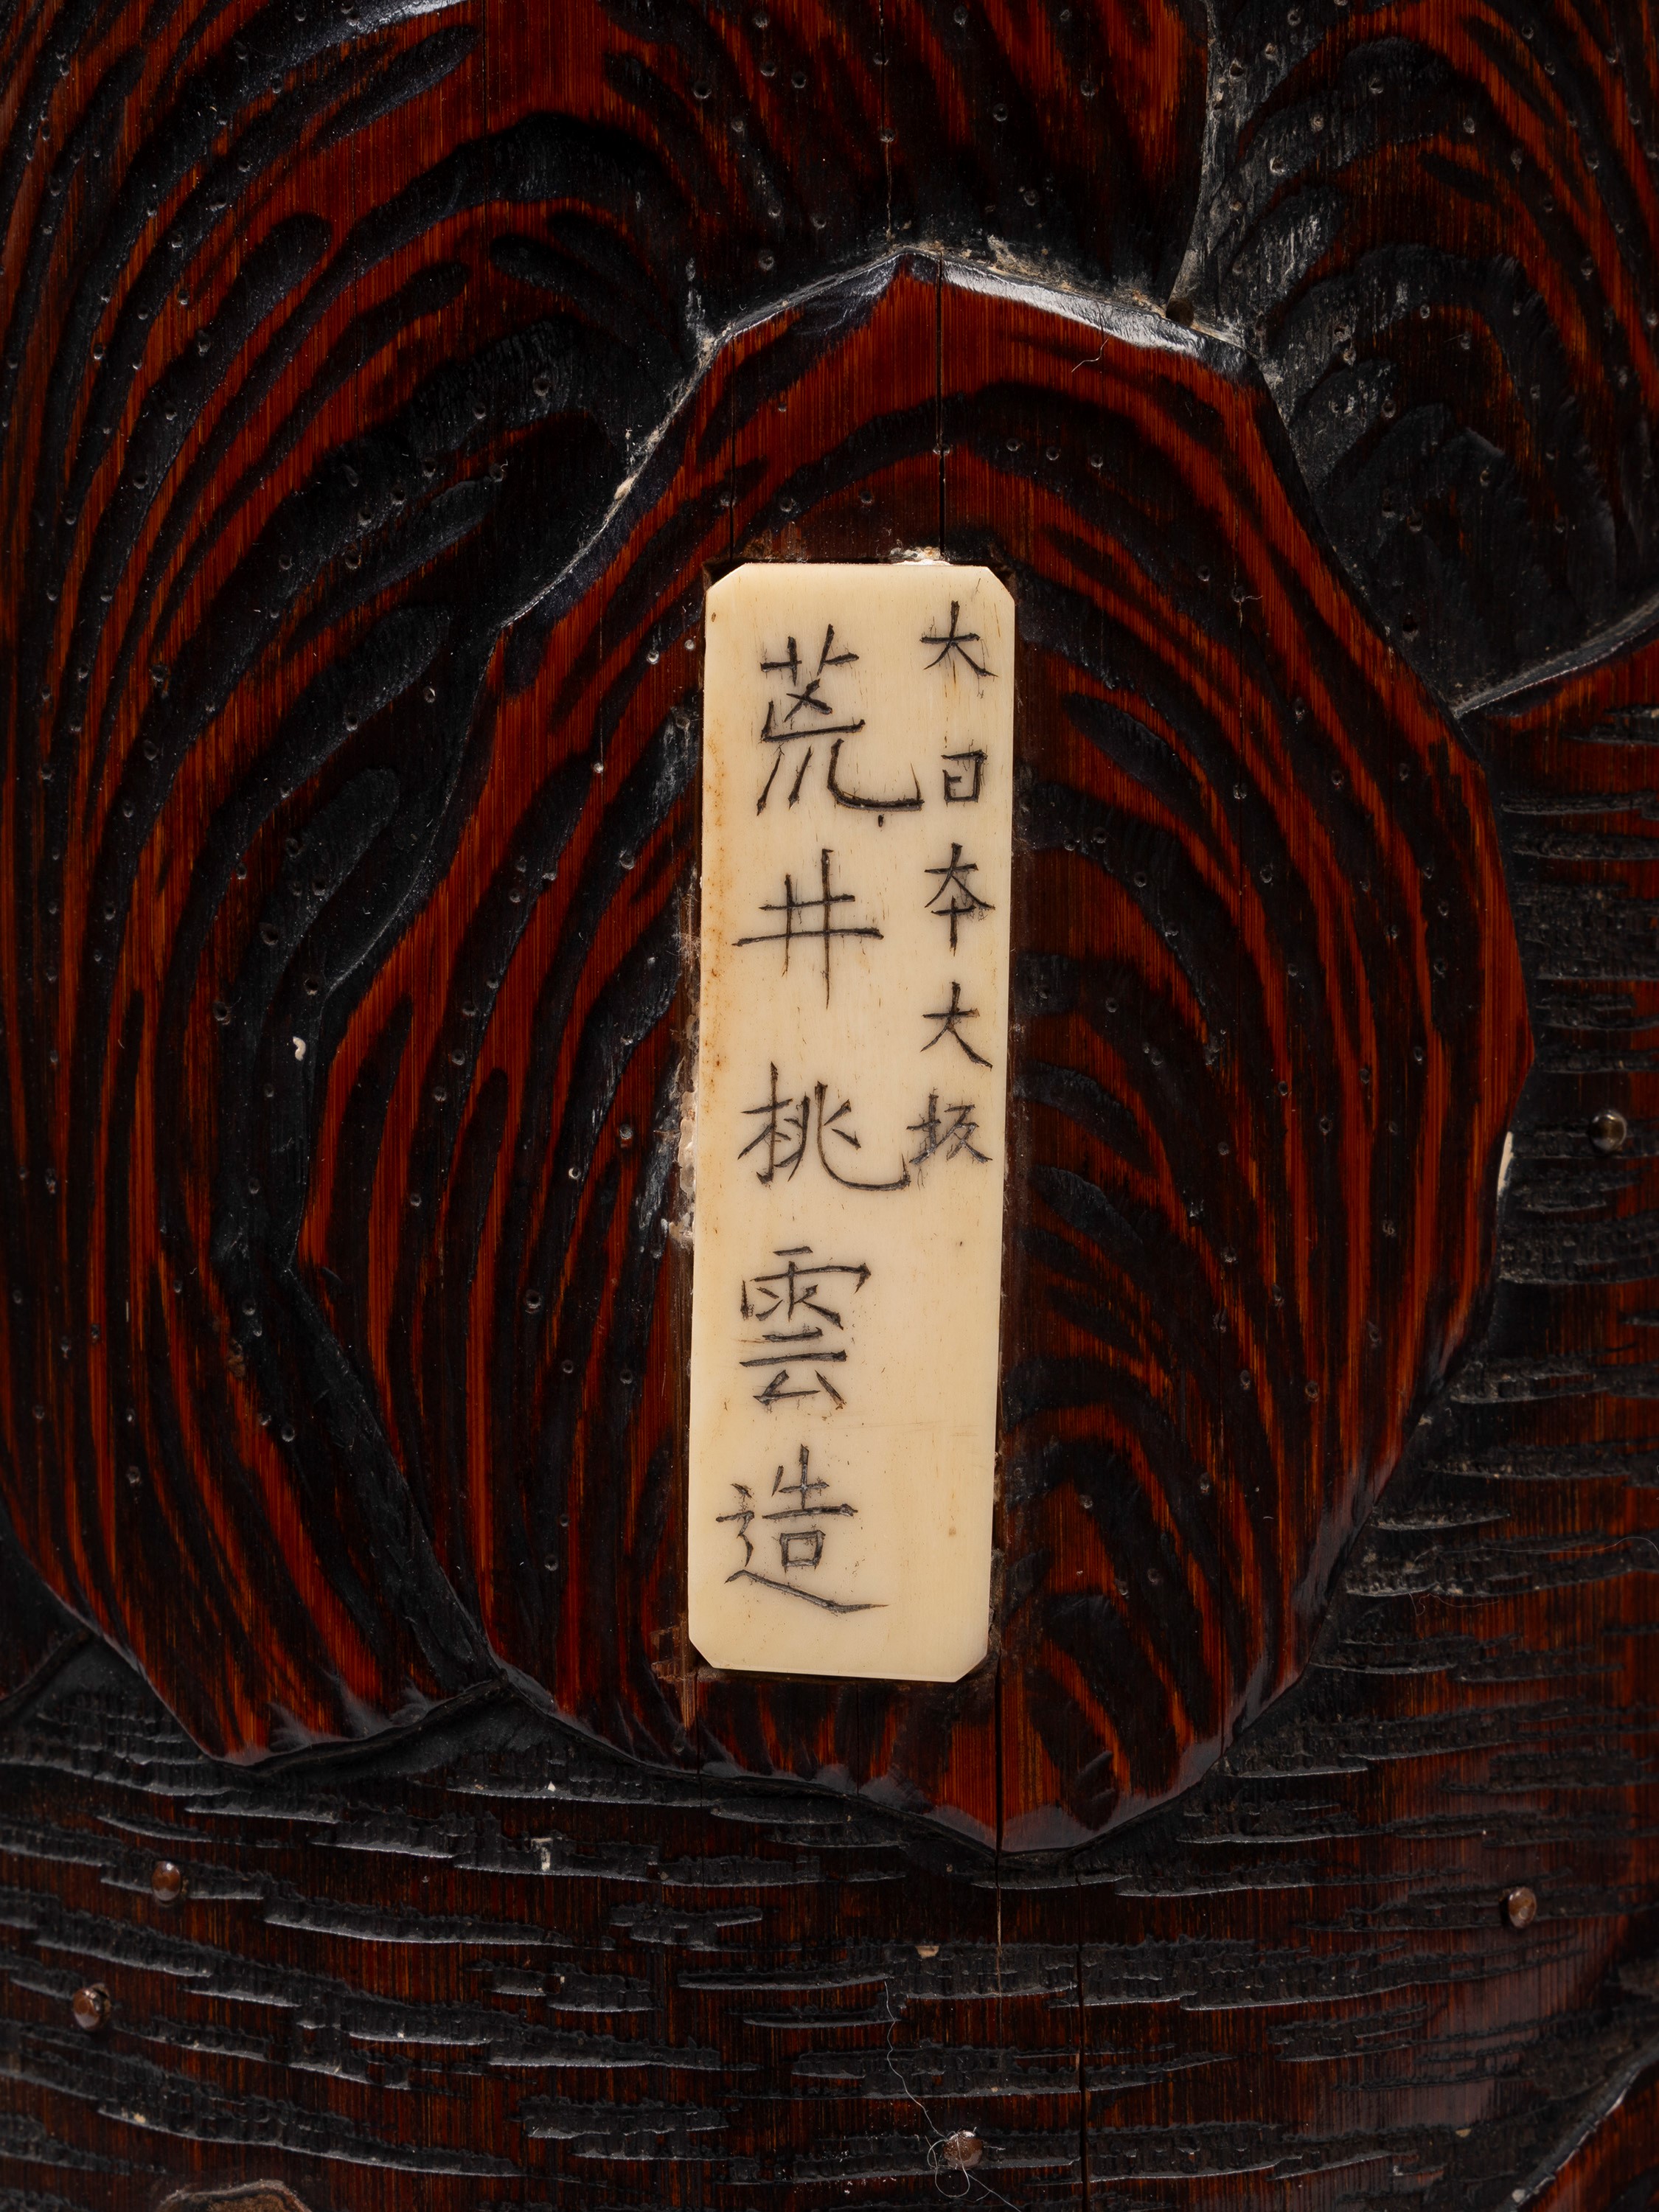 大日本大坂
荒井桃雲造